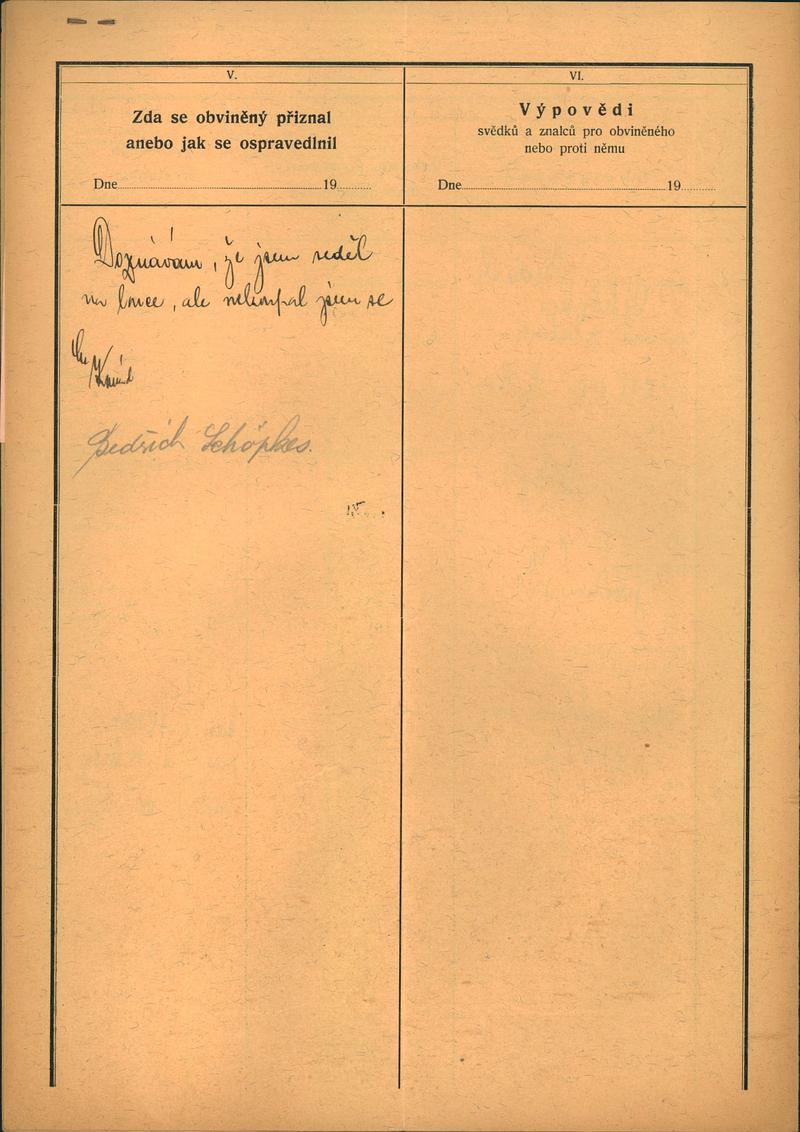 V.
Zda se obviněný přiznal
anebo jak se ospravedlnil
Dne 19
Doznávám, že jsem seděl
na louce, ale nekoupal jsem se
Bedřich Schöpkes.
VI.
Výpovědi
svědků a znalců pro obviněného
nebo proti němu
Dne 19